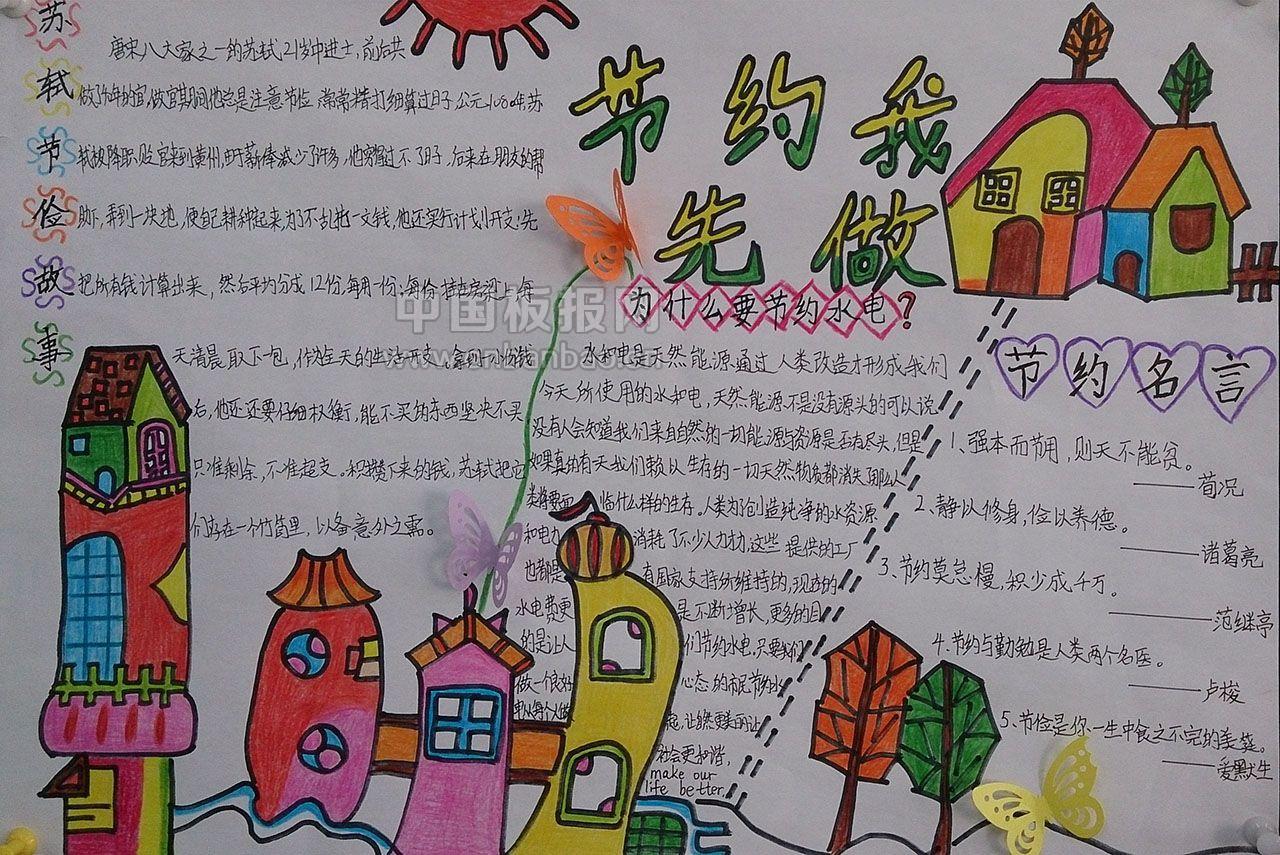 苏轼节俭故事
唐宋八大家之一的苏轼21岁中进士，前后共
做了40年的官，做官期间他总是注意节俭，常常精打细算过日子。公元1080年，苏
轼被降职贬官来到黄州，由于薪俸减少了许多，他穷得过不了日子，后来在朋友的帮
助下，弄到一块地，便自己耕种起来。为了不乱花一文钱，他还实行计划开支：先
把所有钱计算出来，然后平均分成12份，每月一份；每份
天清晨取下一包，作为全天的生活开支。拿到一小份钱
后，他还还要仔细权衡，能不买的东西坚决不买
只准剩余，不准超支。积攒下来的钱，苏轼把它
们存在一个竹筒里，以备意外之需。
节约我
先做
为什么要节约水电？
水和电是天然能源通过人类改造才形成，我们
今天所使用的水和电，天然能源不是没有源头的可以说
没有人会知道我们来自自然的一切能源与资源是否有尽头，但是
如果真的有天我们赖以生存的一切天然物质都消失，那么人
类将要面临什么样的生存。人类为了创造纯净的水资源
和电力 消耗了不少人力物力，这些提供的工厂
也都是 有国家支持纺维持的，现在的
水电费更 是不断增长，更多的目
的是让人 们节约水电，只要我们
做一个良好 心态的市民节约水
电从每个人做 起，让自然更美丽让
社会更和谐，
make our
life better.
节约名言
1、强本而节用，则天不能贫。
——荀况
2、静以修身，俭以养德。
——诸葛亮
3、节约莫怠慢，积少成千万。
——范继亭
4、节约与勤勉是人类两个名医。
——卢梭
5、节俭是你一生中食之不完的美筵。
——爱默生
中国板报网